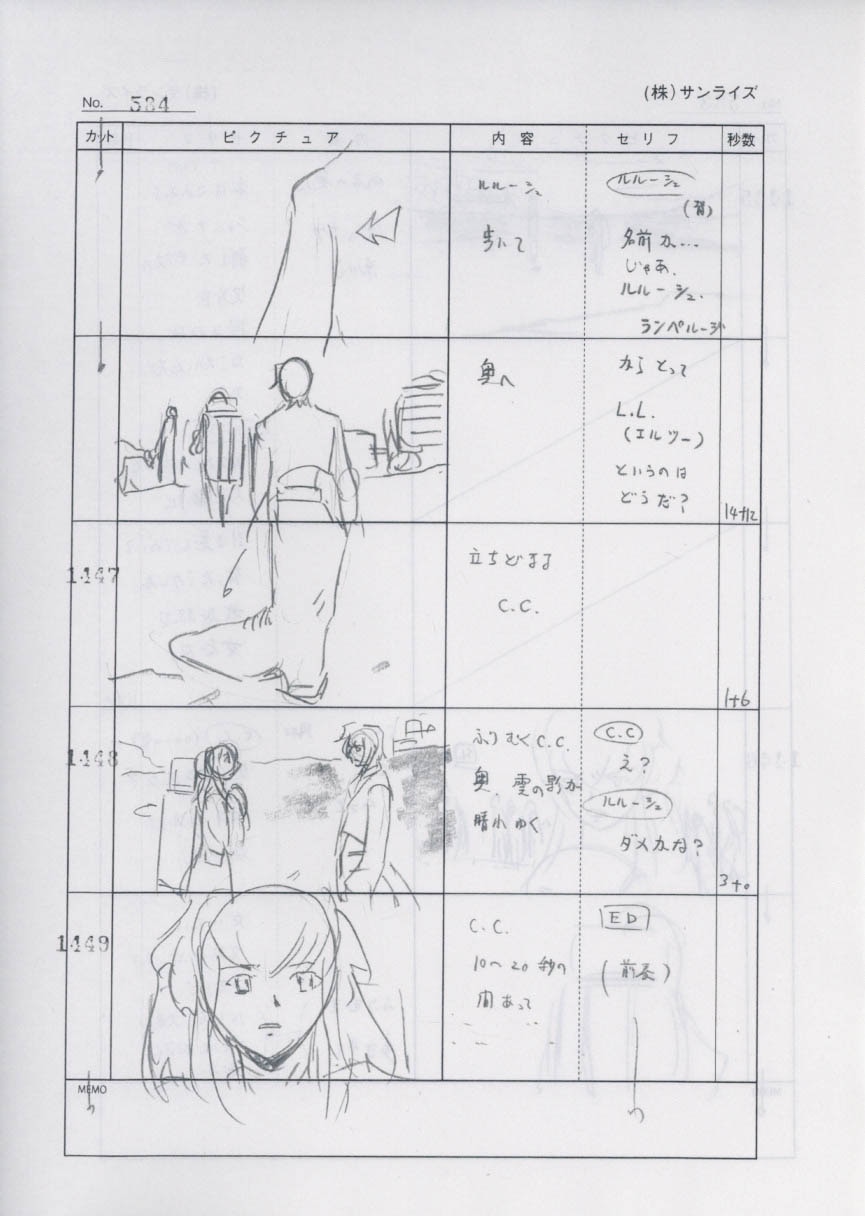 No. 584
(株)サンライズ
カット ピクチュア 内容 セリフ 秒数
ルルーシュ
歩いて
ルルーシュ
(背)
名前か…
じゃあ、
ルルーシュ.
ランペルージ
奥へ
からとって
L.L.
(エルツー)
というのは
どうだ?
14+12
1447
立ちどまる
C.C.
1+6
1448
ふりむくC.C.
奥、雲の影が
晴れゆく
C.C
え?
ルルーシュ
ダメかな?
3+0
1449
C.C.
10〜20秒の
間あって
ED
(前奏)
MEMO